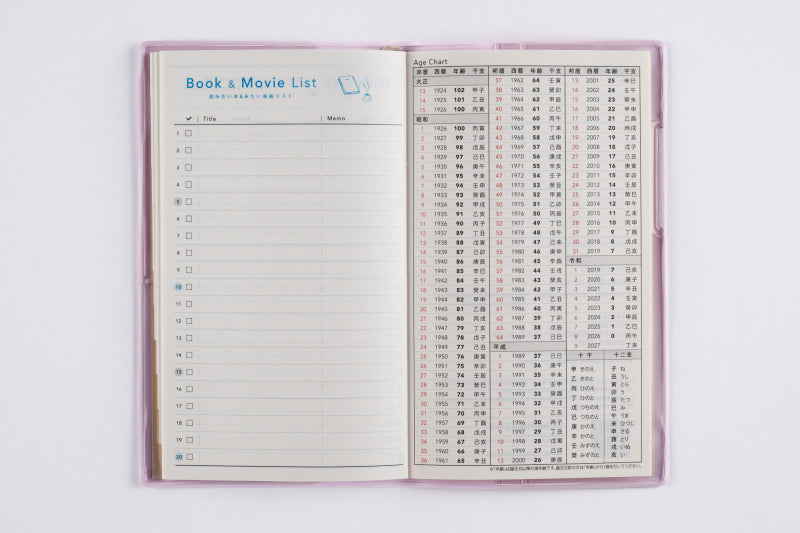 Book & Movie List
読みたい本&みたい映画リスト
✓ Title Memo
1
2
3
4
5
6
7
8
9
10
11
12
13
14
15
16
17
18
19
20
Age Chart
邦暦 西暦 年齢 干支
大正
13 1924 102 甲子
14 1925 101 乙丑
15 1926 100 丙寅
昭和
1 1926 100 丙寅
2 1927 99 丁卯
3 1928 98 戊辰
4 1929 97 己巳
5 1930 96 庚午
6 1931 95 辛未
7 1932 94 壬申
8 1933 93 癸酉
9 1934 92 甲戌
10 1935 91 乙亥
11 1936 90 丙子
12 1937 89 丁丑
13 1938 88 戊寅
14 1939 87 己卯
15 1940 86 庚辰
16 1941 85 辛巳
17 1942 84 壬午
18 1943 83 癸未
19 1944 82 甲申
20 1945 81 乙酉
21 1946 80 丙戌
22 1947 79 丁亥
23 1948 78 戊子
24 1949 77 己丑
25 1950 76 庚寅
26 1951 75 辛卯
27 1952 74 壬辰
28 1953 73 癸巳
29 1954 72 甲午
30 1955 71 乙未
31 1956 70 丙申
32 1957 69 丁酉
33 1958 68 戊戌
34 1959 67 己亥
35 1960 66 庚子
36 1961 65 辛丑
邦暦 西暦 年齢 干支
37 1962 64 壬寅
38 1963 63 癸卯
39 1964 62 甲辰
40 1965 61 乙巳
41 1966 60 丙午
42 1967 59 丁未
43 1968 58 戊申
44 1969 57 己酉
45 1970 56 庚戌
46 1971 55 辛亥
47 1972 54 壬子
48 1973 53 癸丑
49 1974 52 甲寅
50 1975 51 乙卯
51 1976 50 丙辰
52 1977 49 丁巳
53 1978 48 戊午
54 1979 47 己未
55 1980 46 庚申
56 1981 45 辛酉
57 1982 44 壬戌
58 1983 43 癸亥
59 1984 42 甲子
60 1985 41 乙丑
61 1986 40 丙寅
62 1987 39 丁卯
63 1988 38 戊辰
64 1989 37 己巳
平成
1 1989 37 己巳
2 1990 36 庚午
3 1991 35 辛未
4 1992 34 壬申
5 1993 33 癸酉
6 1994 32 甲戌
7 1995 31 乙亥
8 1996 30 丙子
9 1997 29 丁丑
10 1998 28 戊寅
11 1999 27 己卯
12 2000 26 庚辰
邦暦 西暦 年齢 干支
13 2001 25 辛巳
14 2002 24 壬午
15 2003 23 癸未
16 2004 22 甲申
17 2005 21 乙酉
18 2006 20 丙戌
19 2007 19 丁亥
20 2008 18 戊子
21 2009 17 己丑
22 2010 16 庚寅
23 2011 15 辛卯
24 2012 14 壬辰
25 2013 13 癸巳
26 2014 12 甲午
27 2015 11 乙未
28 2016 10 丙申
29 2017 9 丁酉
30 2018 8 戊戌
31 2019 7 己亥
令和
1 2019 7 己亥
2 2020 6 庚子
3 2021 5 辛丑
4 2022 4 壬寅
5 2023 3 癸卯
6 2024 2 甲辰
7 2025 1 乙巳
8 2026 0 丙午
9 2027 丁未
十干 十二支
甲 きのえ 子 ね
乙 きのと 丑 うし
丙 ひのえ 寅 とら
丁 ひのと 卯 う
戊 つちのえ 辰 たつ
己 つちのと 巳 み
庚 かのえ 午 うま
辛 かのと 未 ひつじ
壬 みずのえ 申 さる
癸 みずのと 酉 とり
戌 いぬ
亥 い
※「年齢」は誕生日以降の満年齢です。誕生日前の方は「年齢」から1歳を引いてください。